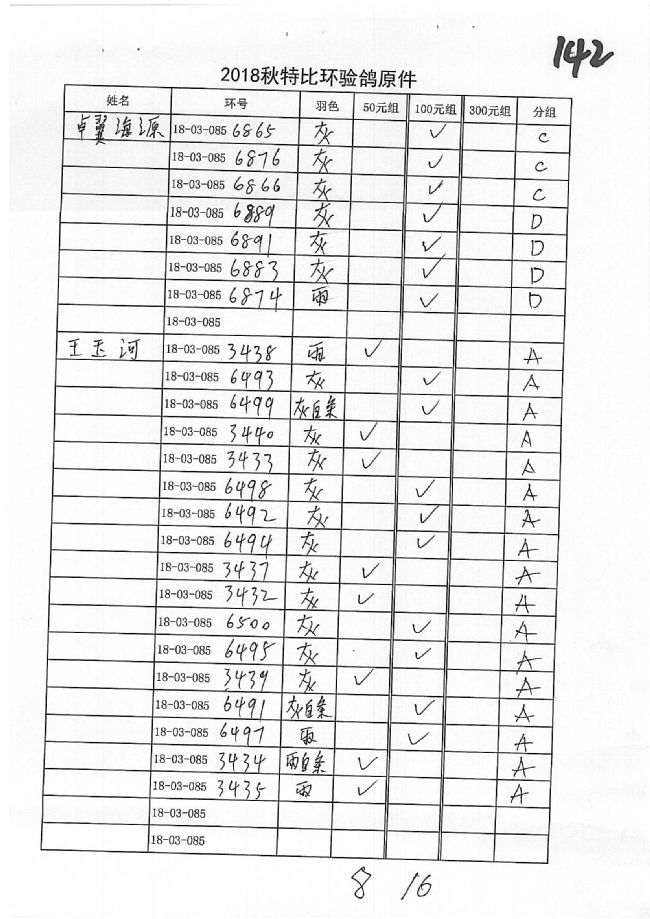 142
2018秋特比环验鸽原件
姓名 环号 羽色 50元组 100元组 300元组 分组
卓翼海源 18-03-085 6865 灰 ✓ C
18-03-085 6876 灰 ✓ C
18-03-085 6866 灰 ✓ C
18-03-085 6889 灰 ✓ D
18-03-085 6891 灰 ✓ D
18-03-085 6883 灰 ✓ D
18-03-085 6874 雨 ✓ D
18-03-085
王玉河 18-03-085 3438 雨 ✓ A
18-03-085 6493 灰 ✓ A
18-03-085 6499 灰白条 ✓ A
18-03-085 3440 灰 ✓ A
18-03-085 3433 灰 ✓ A
18-03-085 6498 灰 ✓ A
18-03-085 6492 灰 ✓ A
18-03-085 6494 灰 ✓ A
18-03-085 3437 灰 ✓ A
18-03-085 3432 灰 ✓ A
18-03-085 6500 灰 ✓ A
18-03-085 6495 灰 ✓ A
18-03-085 3439 灰 ✓ A
18-03-085 6491 灰白条 ✓ A
18-03-085 6497 雨 ✓ A
18-03-085 3434 雨白条 ✓ A
18-03-085 3435 雨 ✓ A
18-03-085
18-03-085
8 16